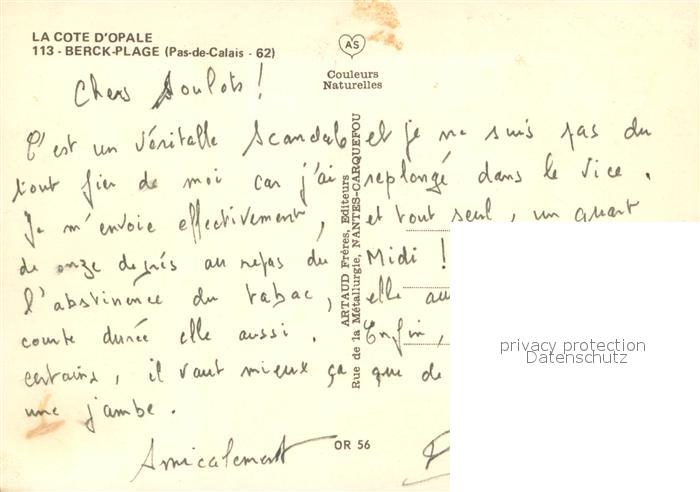 LA COTE D'OPALE
113 - BERCK-PLAGE (Pas-de-Calais - 62)
AS
Couleurs
Naturelles
Chers Soulots !
C'est un véritable scandale et je ne suis pas du
tout fier de moi car j'ai replongé dans le vice.
Je m'envoie effectivement, et tout seul, un quart
de onze degrés au repas du Midi !
l'abstinence du tabac, elle au
courte durée elle aussi. Enfin,
certains, il vaut mieux ça que de
une jambe.
Amicalement
ARTAUD Frères, Editeurs
Rue de la Métallurgie, NANTES-CARQUEFOU
OR 56
privacy protection
Datenschutz